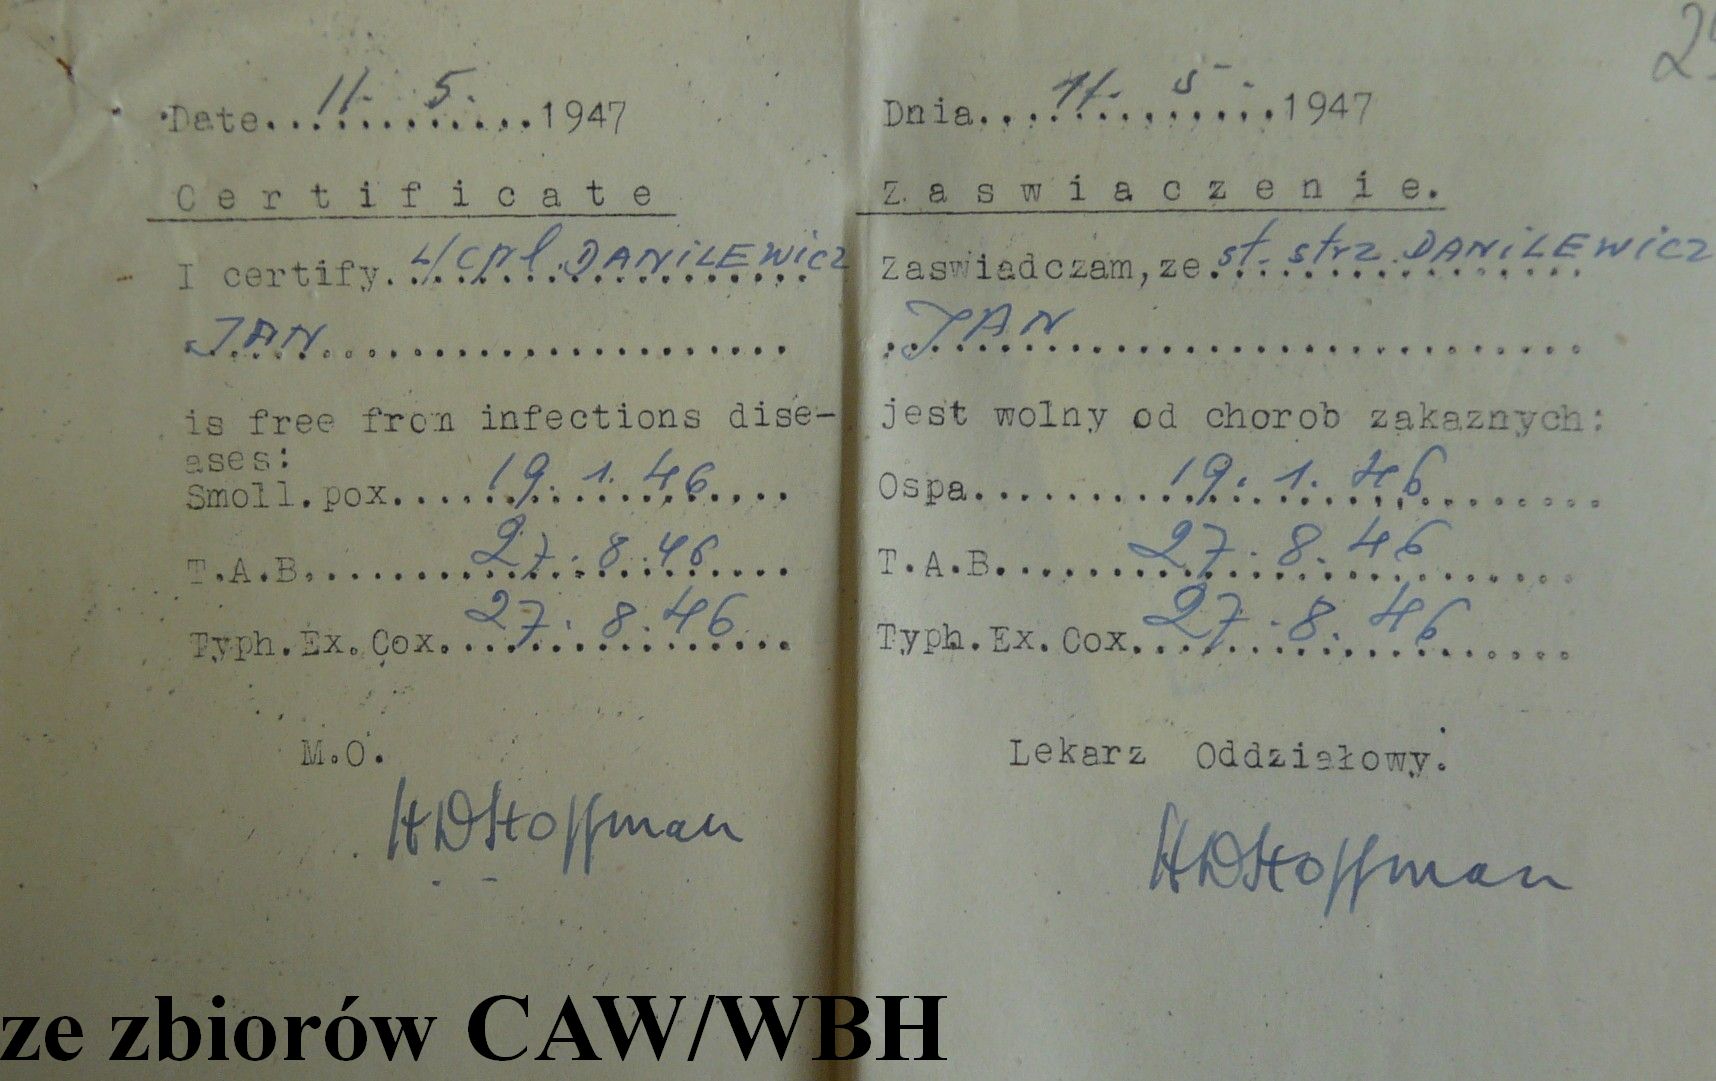 Date 11. 5. 1947
Certificate
I certify L/cpl DANILEWICZ
JAN
is free from infections dise-
ases:
Smoll.pox 19. 1. 46
T.A.B. 27. 8. 46
Typh.Ex.Cox. 27. 8. 46
M.O.
HDHoffman
Dnia 11. 5. 1947
Zaswiaczenie.
Zaswiadczam, ze st. strz DANILEWICZ
JAN
jest wolny od chorob zakaznych:
Ospa 19. 1. 46
T.A.B. 27. 8. 46
Typh.Ex.Cox 27. 8. 46
Lekarz Oddziałowy:
HDHoffman
ze zbiorów CAW/WBH